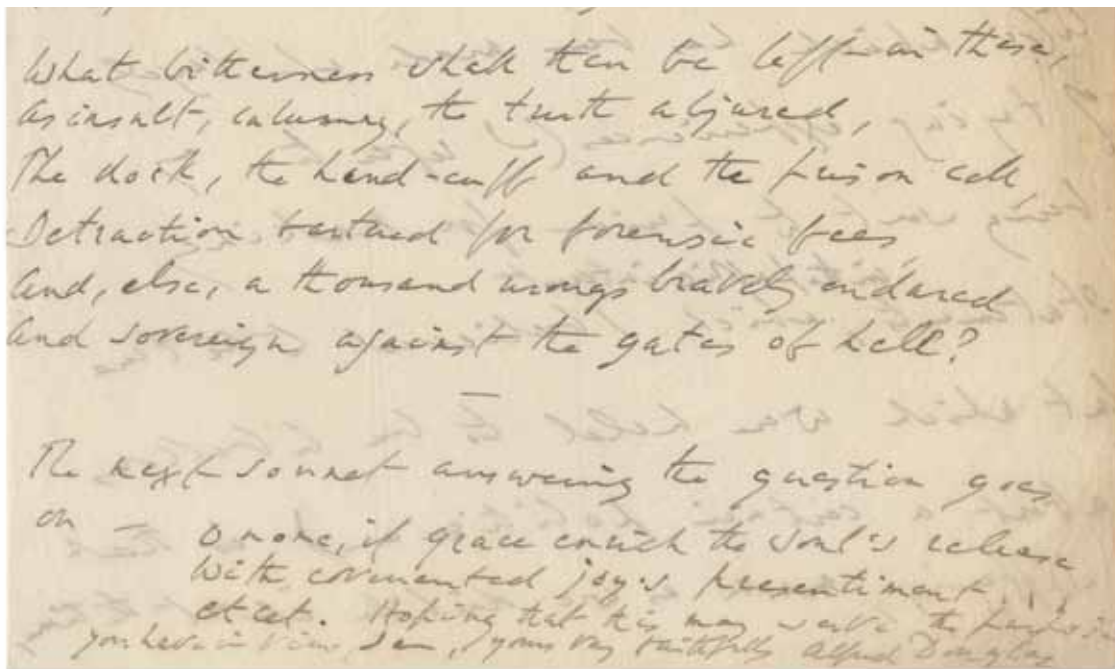 What bitterness shall then be left in these,
As insult, calumny, the truth abjured,
The dock, the hand-cuff and the prison cell,
Detraction, for forensic fees,
And, else, a thousand wrongs bravely endured
And sovereign against the gates of hell?
—
The next sonnet answering the question goes
on —
O none, if grace enrich the soul's release
With covenanted joy's presentiment...
etcet. Hoping that this may serve the purpose
you have in view, I am, yours very faithfully Alfred Douglas